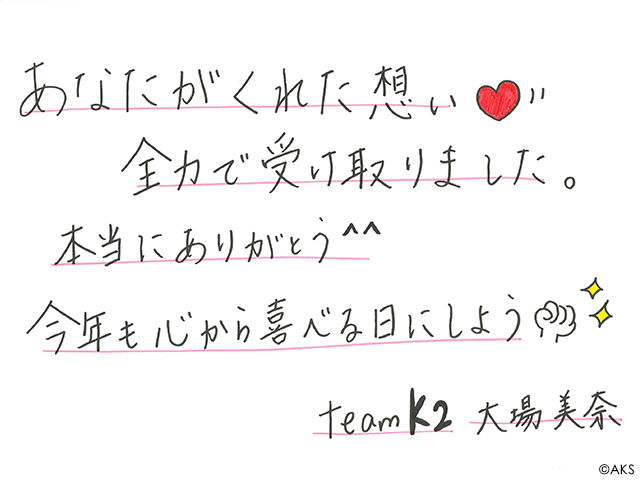 あなたがくれた想い
全力で受け取りました。
本当にありがとう^^
今年も心から喜べる日にしよう
teamK2 大場美奈
©AKS